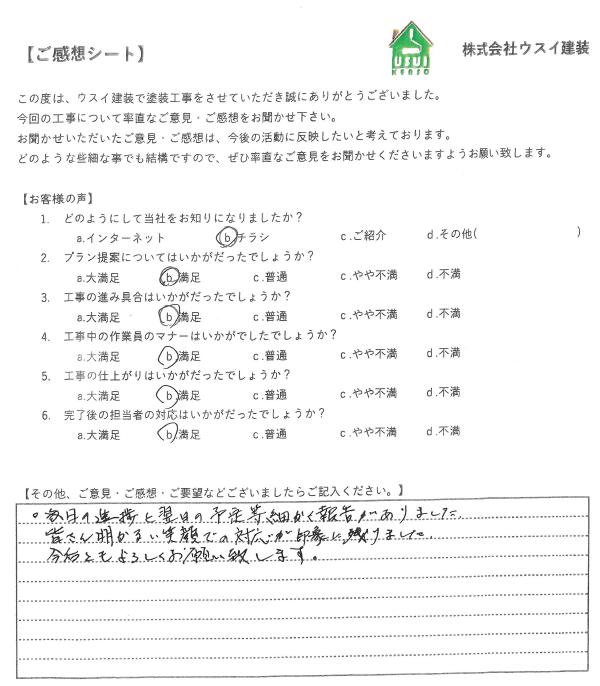 【ご感想シート】
USUI
KENSO
株式会社ウスイ建装
この度は、ウスイ建装で塗装工事をさせていただき誠にありがとうございました。
今回の工事について率直なご意見・ご感想をお聞かせ下さい。
お聞かせいただいたご意見・ご感想は、今後の活動に反映したいと考えております。
どのような些細な事でも結構ですので、ぜひ率直なご意見をお聞かせくださいますようお願い致します。
【お客様の声】
1. どのようにして当社をお知りになりましたか？
a.インターネット b.チラシ c.ご紹介 d.その他( )
2. プラン提案についてはいかがだったでしょうか？
a.大満足 b.満足 c.普通 c.やや不満 d.不満
3. 工事の進み具合はいかがだったでしょうか？
a.大満足 b.満足 c.普通 c.やや不満 d.不満
4. 工事中の作業員のマナーはいかがでしたでしょうか？
a.大満足 b.満足 c.普通 c.やや不満 d.不満
5. 工事の仕上がりはいかがだったでしょうか？
a.大満足 b.満足 c.普通 c.やや不満 d.不満
6. 完了後の担当者の対応はいかがだったでしょうか？
a.大満足 b.満足 c.普通 c.やや不満 d.不満
【その他、ご意見・ご感想・ご要望などございましたらご記入ください。】
。毎日の進捗と翌日の予定等細かく報告がありました。
皆さん明かるい笑顔での対応が印象に残りました。
今后ともよろしくお願い致します。